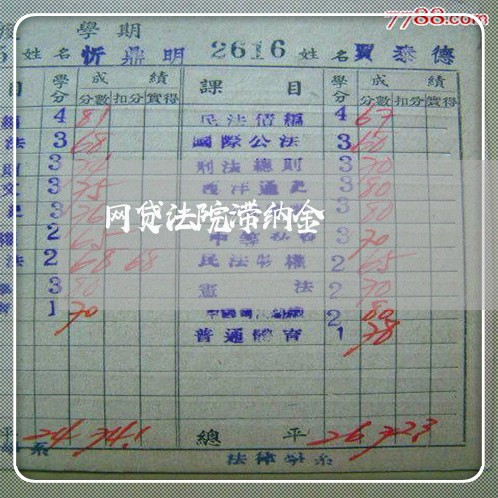 7788.com
學期
姓名 忻鼎明 2616 姓名 賈泰德
目 學分 成績 分數 扣分 實得 課目 學分 成績 分數 扣分 實得
4 81 民法債編 4 67
法 3 68 國際公法 3 60
3 刑法總則 3 70
3 75 西洋通史 3 80
3 3 80
网贷法院滞纳金
2 65 3 70
法 2 68 68 民法物權 2 65
3 80 憲法 2 70
1 70 2 80
普通體育 1 78
平 24 74.1 總平 26 72.3
系 法律學系